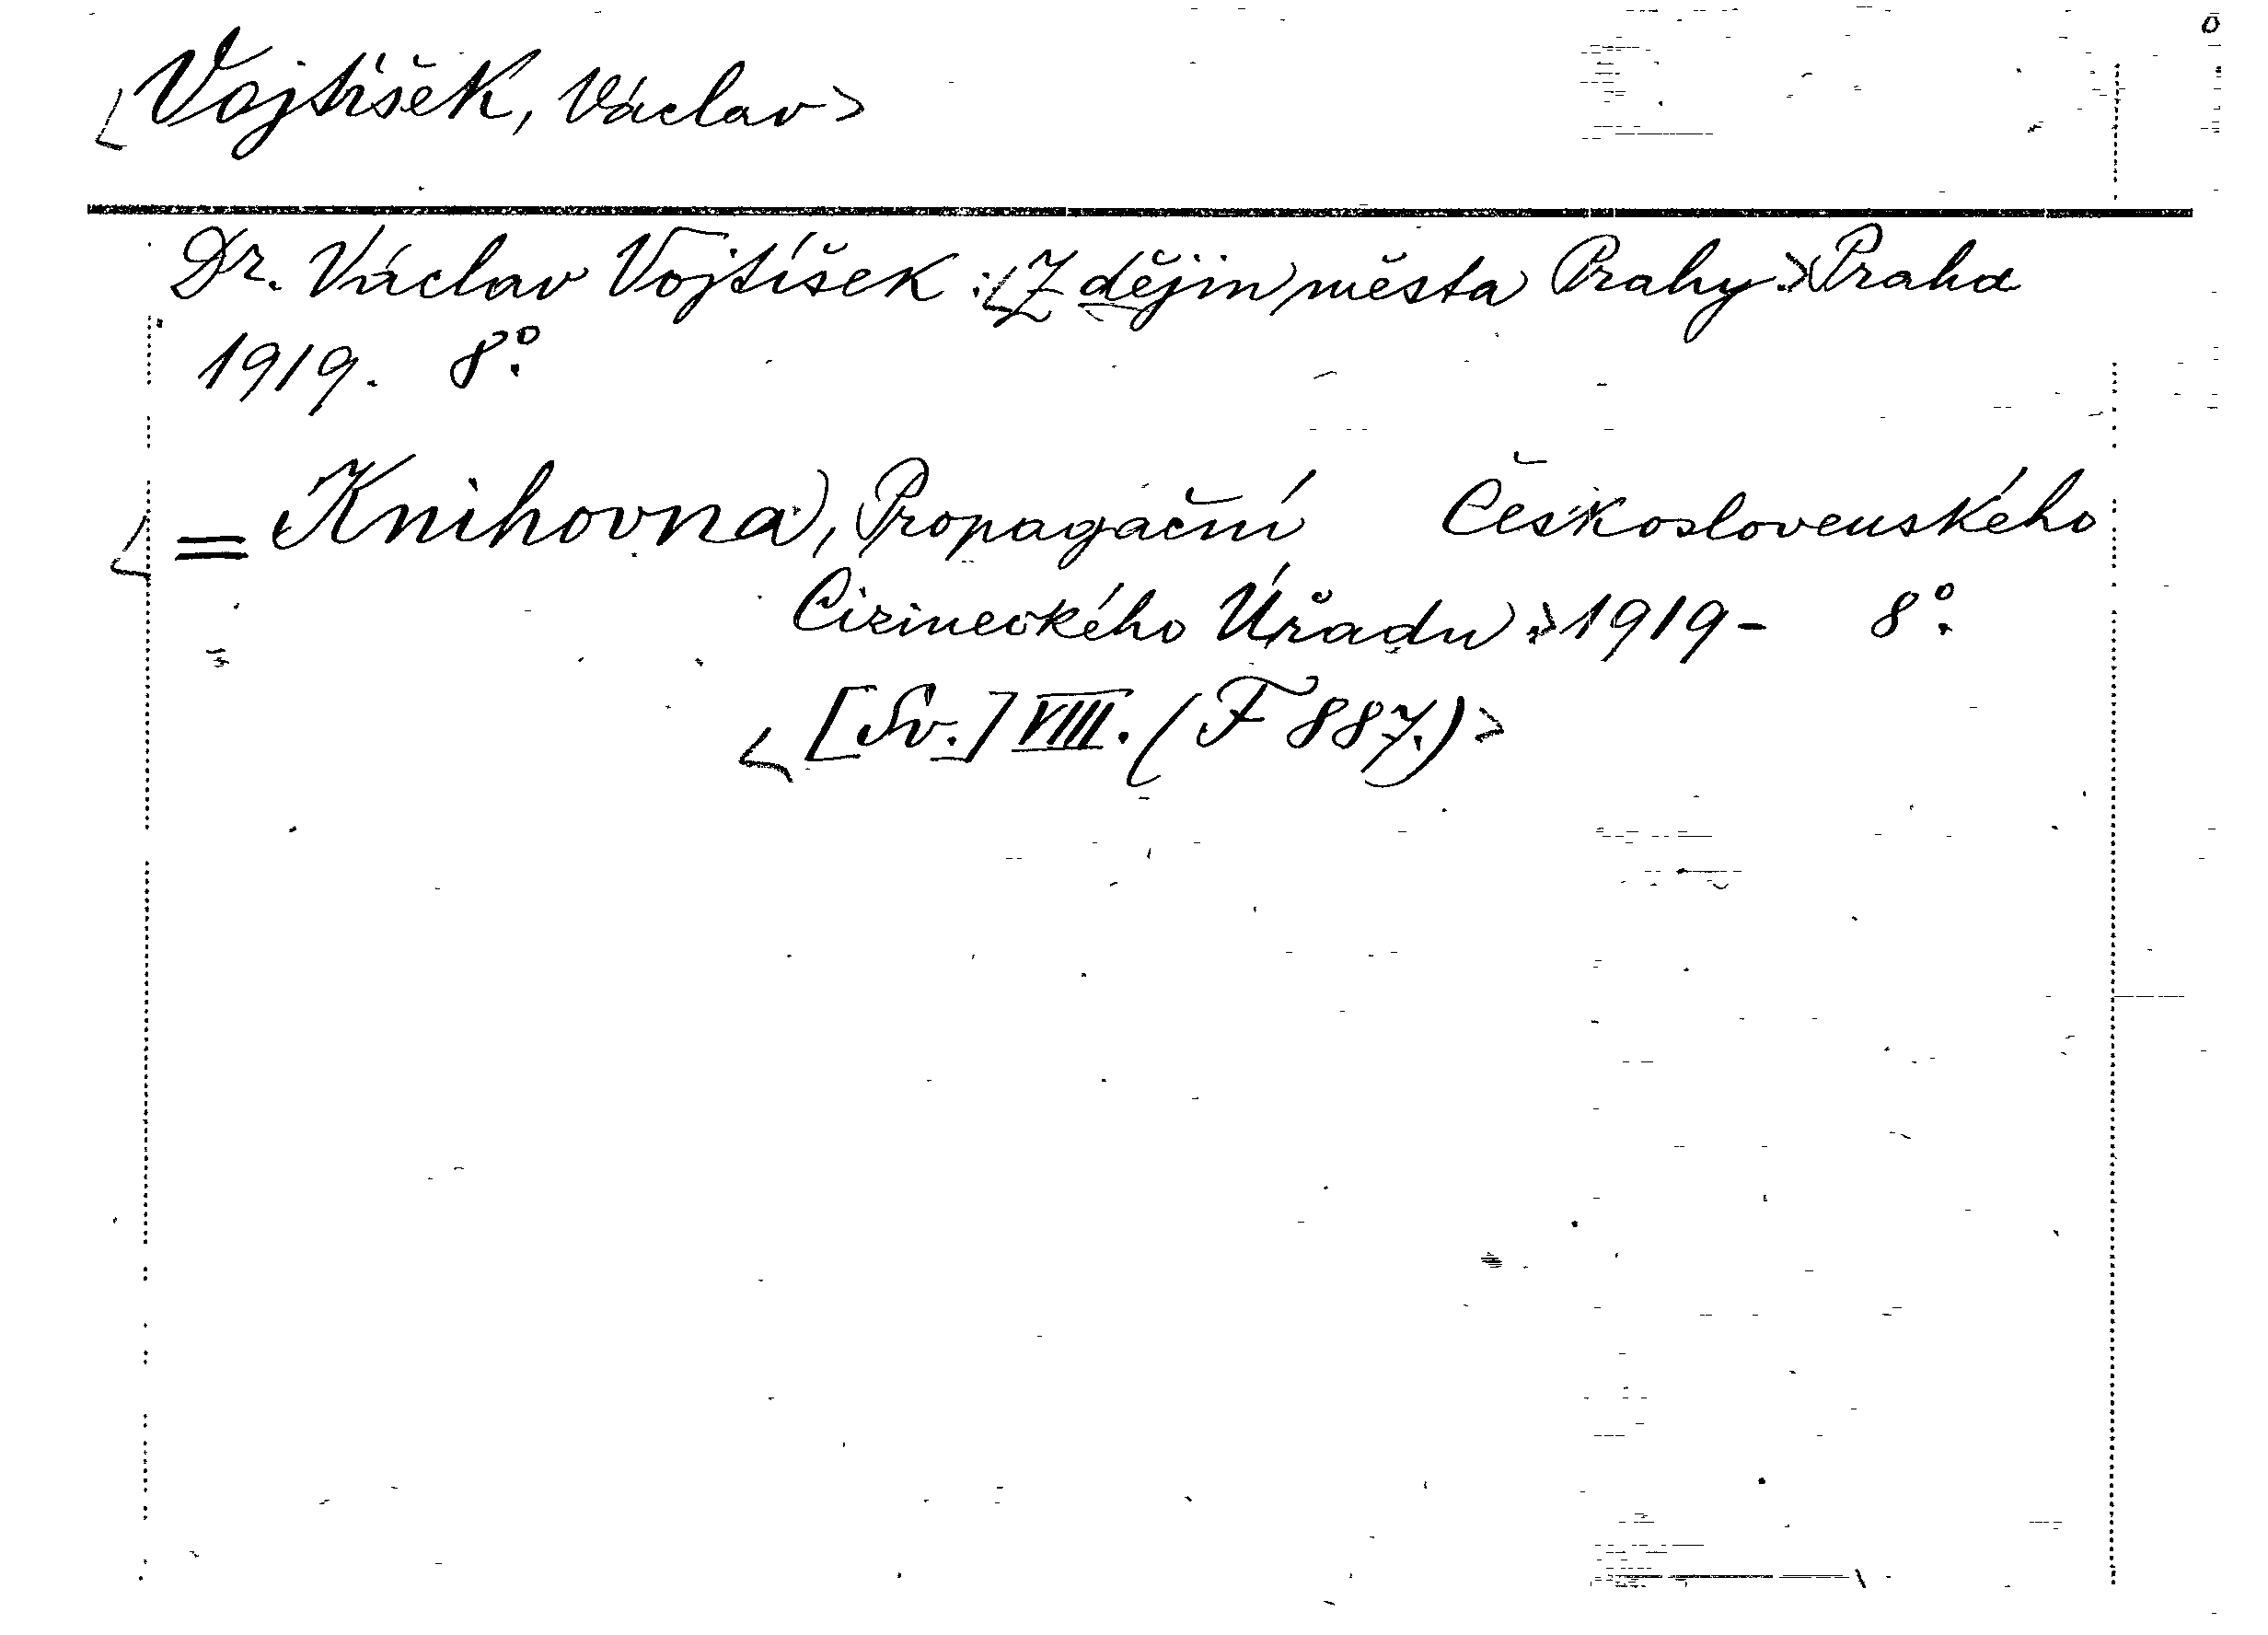 <Vojtíšek, Václav>
Dr. Václav Vojtíšek :<Z dějin města Prahy.> Praha
1919. 8°.
<= Knihovna, Propagační Československého
Cizineckého Úřadu.> 1919- 8°.
<[Sv.] VIII. (F 887.)>